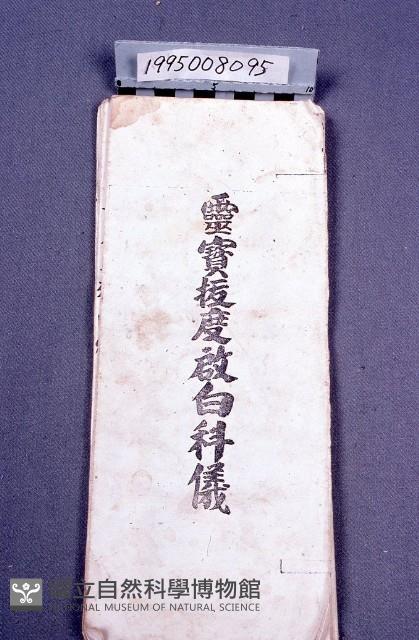 1995008095
靈寶拔度啟白科儀
國立自然科學博物館
NATIONAL MUSEUM OF NATURAL SCIENCE